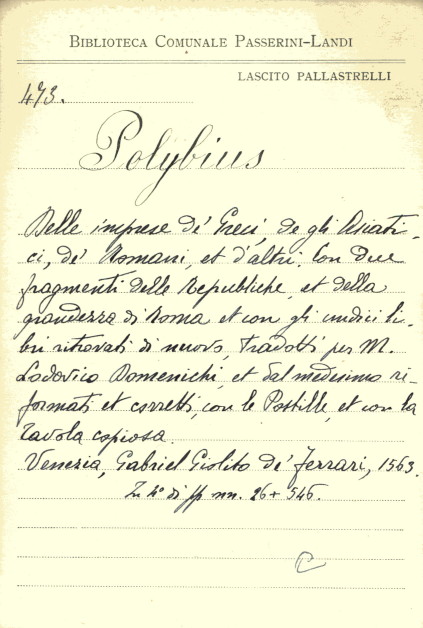 BIBLIOTECA COMUNALE PASSERINI-LANDI
LASCITO PALLASTRELLI
473.
Polybius
Delle imprese de' Greci, de gli Asiati-
ci, de' Romani, et d'altri. Con due
fragmenti delle Republiche, et della
grandezza di Roma et con gli undici li-
bri ritrovati di nuovo, tradotti per M.
Lodovico Domenichi, et dal medesimo ri-
formati et corretti, con le Postille, et con la
tavola copiosa.
Venezia, Gabriel Giolito de' Ferrari, 1563.
In 4° di pp nn. 26 + 546.
C